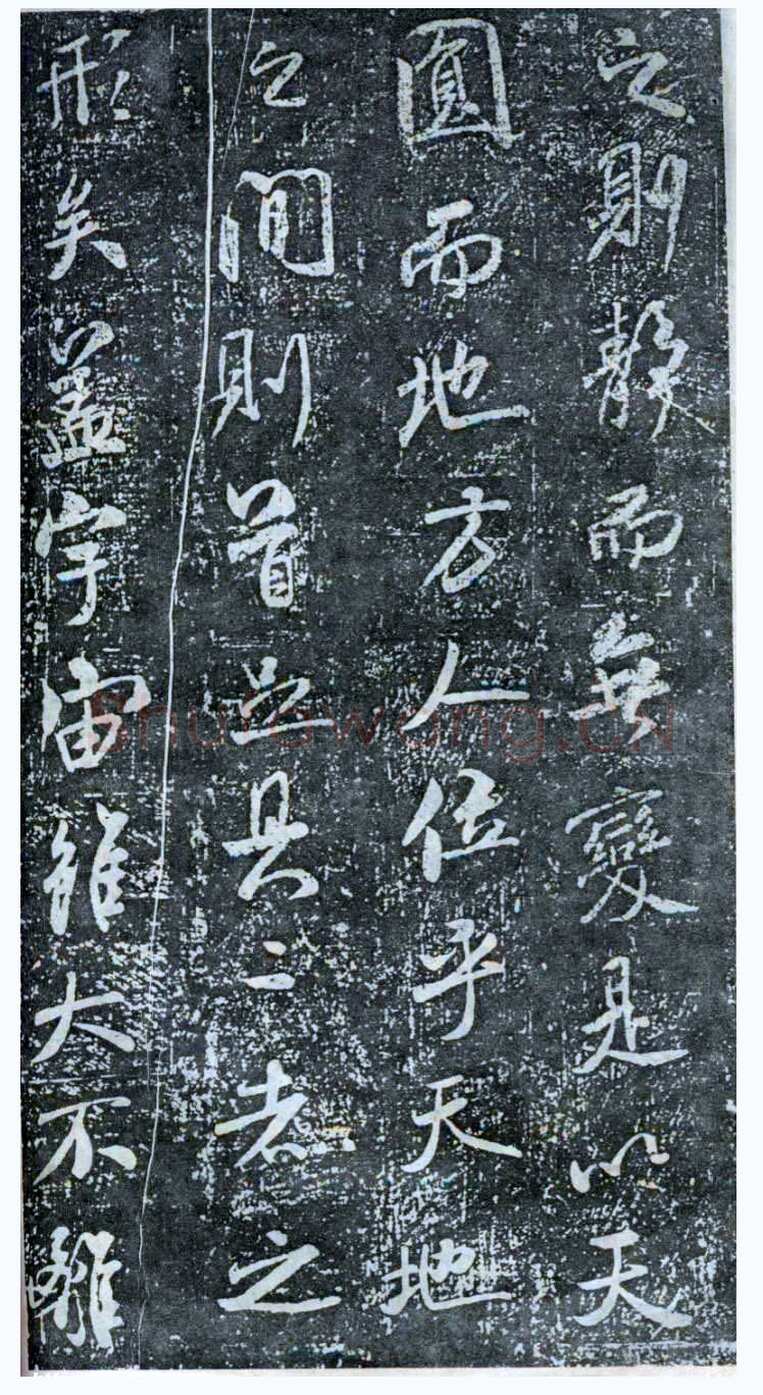 之則靜而無變是以天
圓而地方人位乎天地
之間則首足具二者之
形矣蓋宇宙雖大不離
Shufawang.CN